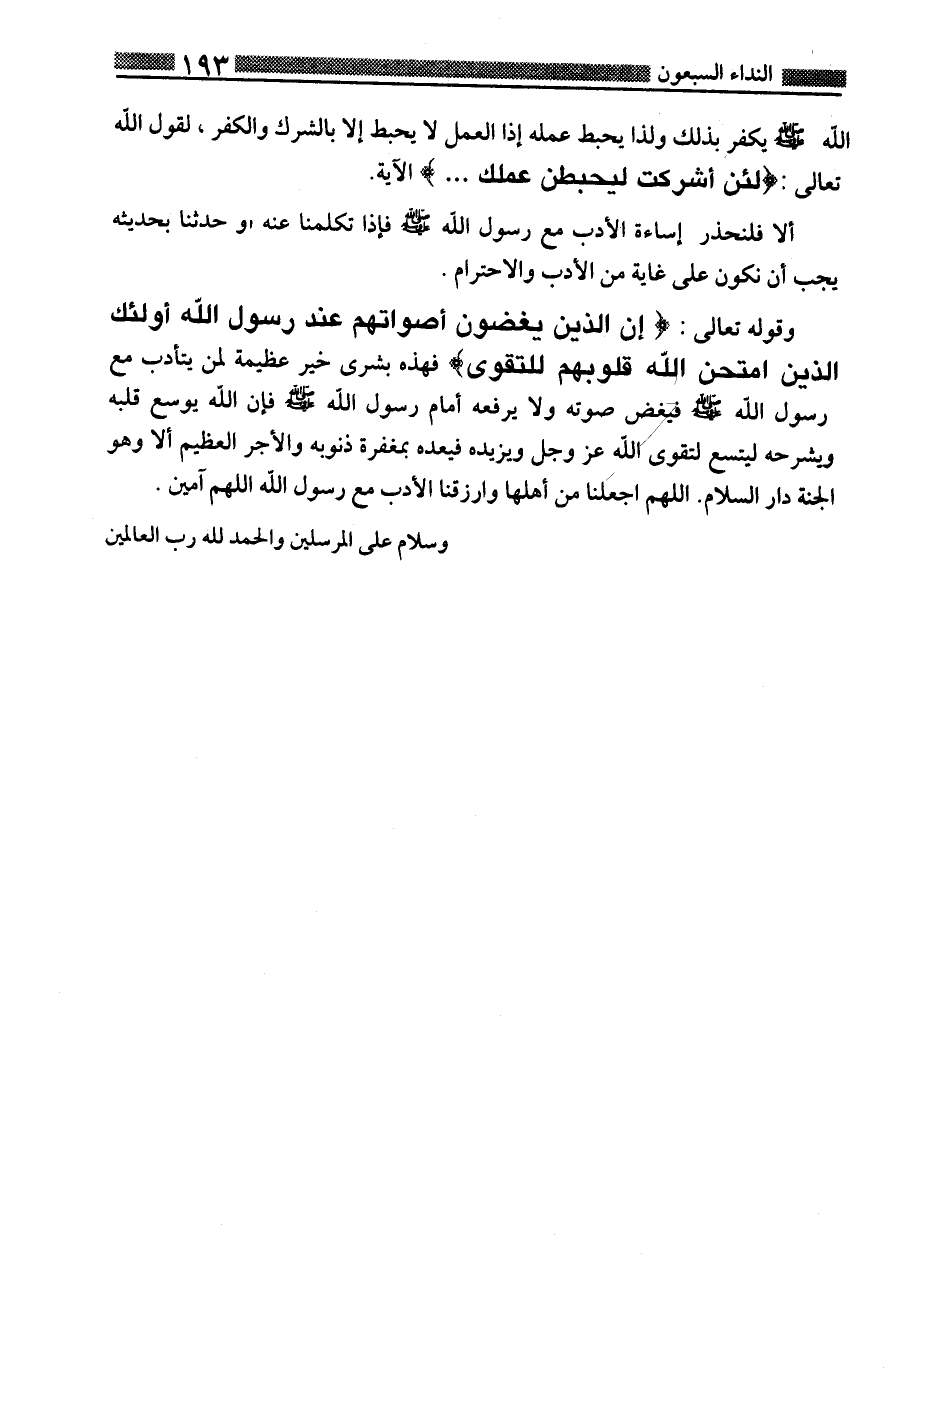 النداء السبعون ١٩٣
الله ﷺ يكفر بذلك ولذا يحبط عمله إذا العمل لا يحبط إلا بالشرك والكفر ، لقول الله
تعالى : ﴿لئن أشركت ليحبطن عملك ... ﴾ الآية.
ألا فلنحذر إساءة الأدب مع رسول الله ﷺ فإذا تكلمنا عنه او حدثنا بحديثه
يجب أن نكون على غاية من الأدب والاحترام .
وقوله تعالى : ﴿ إن الذين يغضون أصواتهم عند رسول الله أولئك
الذين امتحن الله قلوبهم للتقوى﴾ فهذه بشرى خير عظيمة لمن يتأدب مع
رسول الله ﷺ فيغض صوته ولا يرفعه أمام رسول الله ﷺ فإن الله يوسع قلبه
ويشرحه ليتسع لتقوى الله عز وجل ويزيده فيعده بمغفرة ذنوبه والأجر العظيم ألا وهو
الجنة دار السلام. اللهم اجعلنا من أهلها وارزقنا الأدب مع رسول الله اللهم آمين .
وسلام على المرسلين والحمد لله رب العالمين